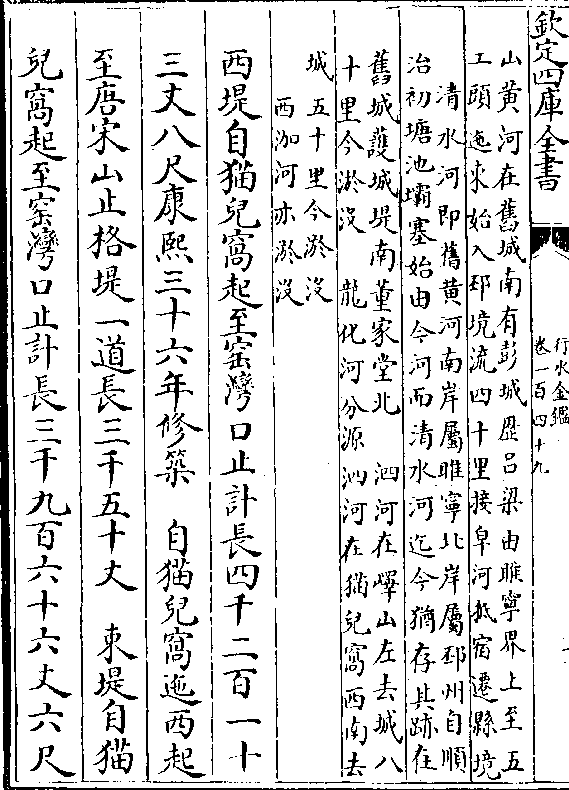 欽定四庫全書
行水金鑑
卷一百四十九
山黄河在舊城南有彭城歴吕梁由睢寧界上至五
工頭迤東始入邳境流四十里接皁河抵宿遷縣境
清水河即舊黄河南岸屬睢寧北岸屬邳州自順
治初塘池壩塞始由今河而清水河迄今猶存其跡在
舊城護城堤南董家堂北　泗河在嶧山左去城八
十里今淤没　龍化河分源泗河在猫兒窩西南去
城五十里今淤没
西泇河亦淤没
西堤自猫兒窩起至窑灣口止計長四千二百一十
三丈八尺康熙三十六年修築　自猫兒窩迤西起
至唐宋山止格堤一道長三千五十丈　東堤自猫
兒窩起至窑灣口止計長三千九百六十六丈六尺